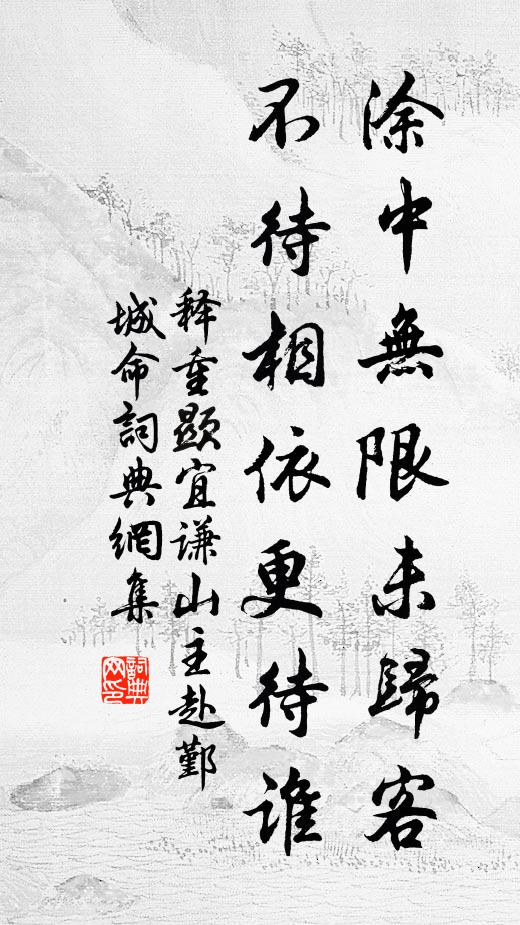 涂中無限未歸客
不待相依更待誰
释重顯宜谦山主赴鄞
城命詞典網集
詞典
网印